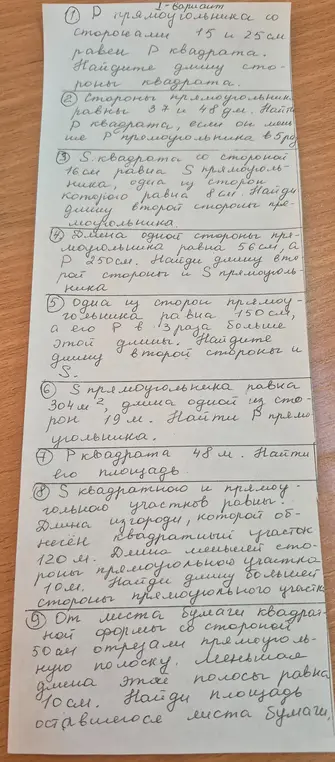 I-вариант
① P прямоугольника со
сторонами 15 и 25 см
равен P квадрата.
Найдите длину сто-
роны квадрата.
② Стороны прямоугольник
равны 37 и 48 дм. Найти
P квадрата, если он мень
ше P прямоугольника в 5 раз
③ S квадрата со стороной
16 см равна S прямоуголь-
ника, одна из сторон
которого равна 8 см. Найди
длину второй стороны пря-
моугольника.
④ Длина одной стороны пря-
моугольника равна 56 см, а
P 250 см. Найди длину вто-
рой стороны и S прямоуголь-
ника
⑤ Одна из сторон прямоу-
гольника равна 150 см,
а его P в 3 раза больше
этой длины. Найдите
длину второй стороны и
S.
⑥ S прямоугольника равна
304 м², длина одной из сто-
рон 19 м. Найти P прямо-
угольника.
⑦ P квадрата 48 м. Найти
его площадь
⑧ S квадратного и прямоу-
гольного участков равны.
Длина изгороди, которой об-
несён квадратный участок
120 м. Длина меньшей сто-
роны прямоугольного участка
10 м. Найди длину большей
стороны прямоугольного участк
⑨ От листа бумаги квадрат-
ной формы со стороной
50 см отрезали прямоуголь-
ную полоску. Меньшая
длина этой полосы равна
10 см. Найди площадь
оставшегося листа бумаги.